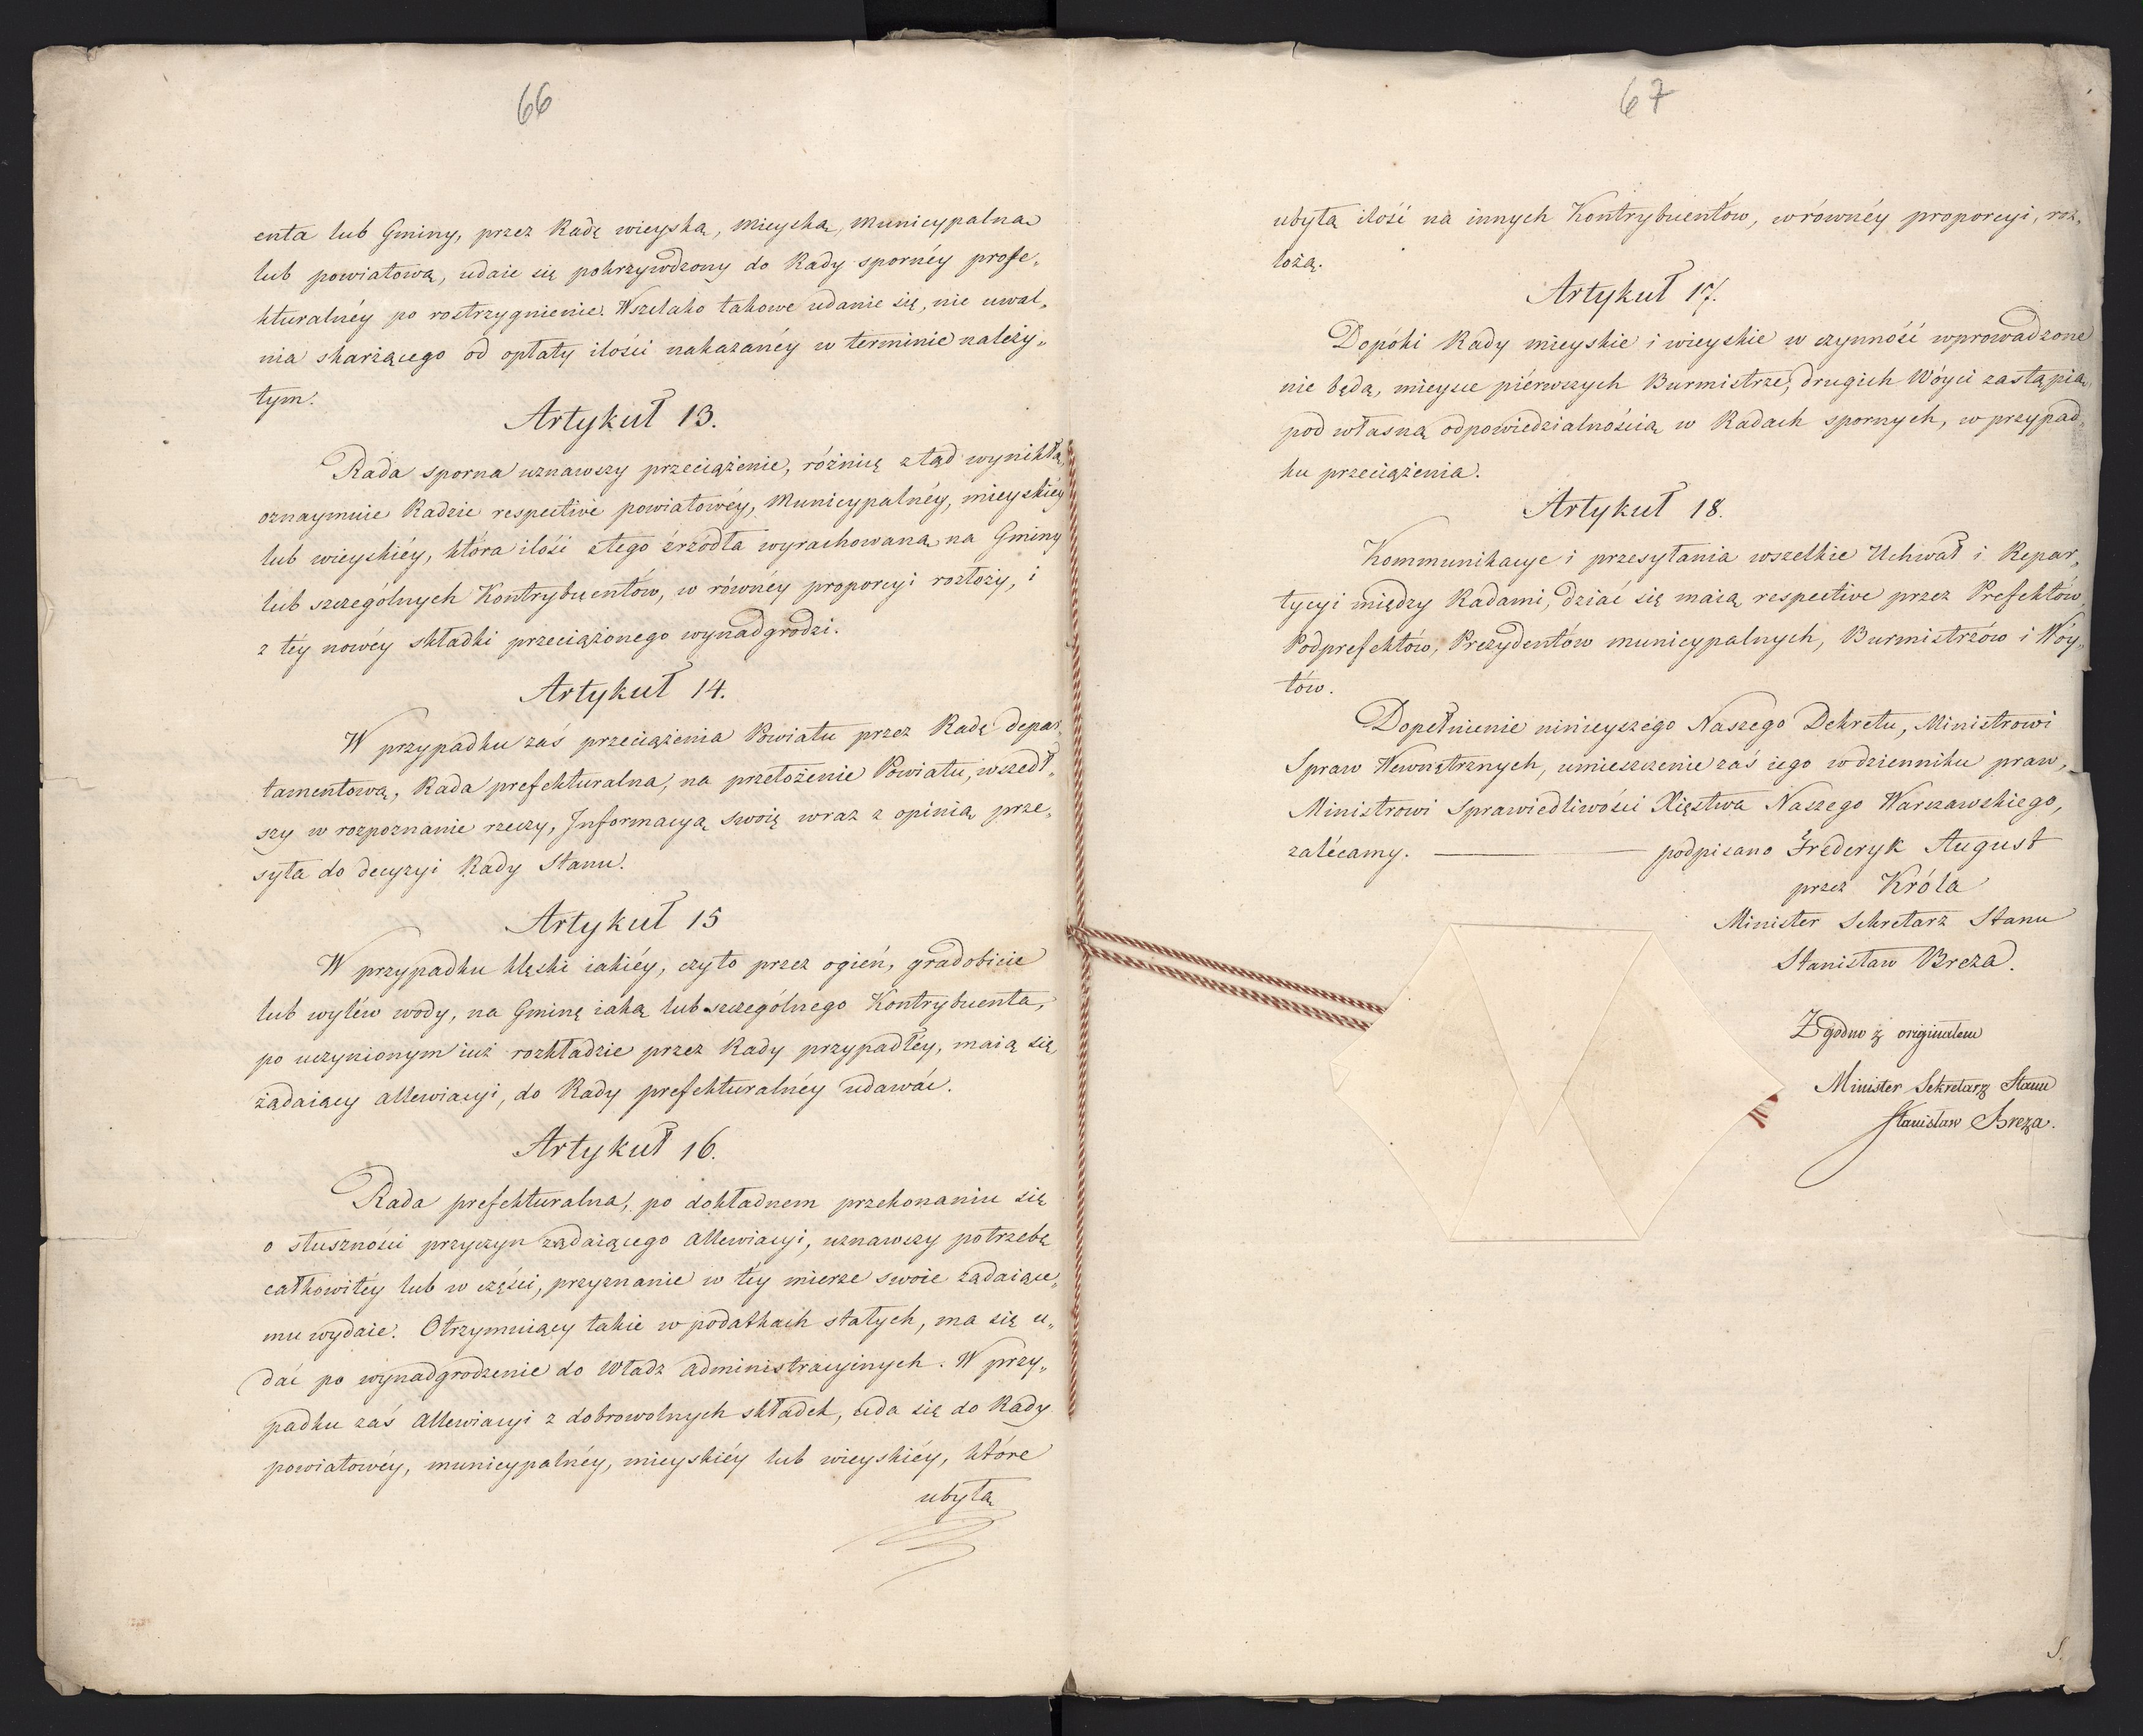 66
enta lub Gminy, przez Radę wieyską, mieyską, Municypalną
lub powiatową, udaie się pokrzywdzony do Rady sporney prefe„
kturalnéy po rostrzygnienie. Wszelako takowe udanie się, nie uwal„
nia skarżącego od opłaty ilości nakazanéy w terminie należy„
tym.
Artykuł 13.
Rada sporna uznawszy przeciążenie, różnicę ztąd wynikłą,
oznaymuie Radzie respective powiatowéy, Municypalnéy, mieyskiéy
lub wieyskiéy, która ilość ztego źrzódła wyrachowaną na Gminy
lub szczególnych Kontrybuentów, w równéy proporcyi rozłoży, i
z téy nowéy składki przeciążonego wynadgrodzi.
Artykuł 14.
W przypadku zaś przeciążenia Powiatu przez Radę depar„
tamentową, Rada prefekturalna, na przełożenie Powiatu, wszedł„
szy w rozpoznanie rzeczy, Informacyą swoię wraz z opinią prze„
syła do decyzyi Rady Stanu.
Artykuł 15
W przypadku klęski iakiéy, czyto przez ogień, gradobicie
lub wyléw wody, na Gminę iaką lub szczególnego Kontrybuenta,
po uczynionym iuż rozkładzie przez Rady przypadłéy, maią się
żądaiący allewiacyi, do Rady prefekturalnéy udawać.
Artykuł 16.
Rada prefekturalna, po dokładnem przekonaniu się
o słuszności przyczyn żądaiącego allewiacyi, uznawszy potrzebę
całkowitéy lub w części, przyznanie w téy mierze swoie żądaiące„
mu wydaie. Otrzymuiący takie w podatkach stałych, ma się u„
dać po wynadgrodzenie do Władz administracyinych. W przy„
padku zaś allewiacyi z dobrowolnych składek, uda się do Rady
powiatowéy, municypalnéy, mieyskiéy lub wieyskiéy, które
ubyłą
67
ubyłą ilość na innych Kontrybuentów, w równéy proporcyi, roz„
łożą.
Artykuł 17.
Dopóki Rady mieyskie i wieyskie w czynność wprowadzone
nie będą, mieysce piérwszych Burmistrze, drugich Wóyci zastąpią,
pod własną odpowiedzialnością w Radach spornych, w przypad„
ku przeciążenia.
Artykuł 18.
Kommunikacye i przesyłania wszelkie Uchwał i Repar„
tycyi między Radami, dziać się maią respective przez Prefektów,
Podprefektów, Prezydentów municypalnych, Burmistrzów i Wóy„
tów.
Dopełnienie ninieyszego Naszego Dekretu, Ministrowi
Spraw Wewnętrznych, umieszczenie zaś iego w dzienniku praw,
Ministrowi Sprawiedliwości Xięstwa Naszego Warszawskiego,
zalécamy. ——— podpisano Frederyk August
przez Króla
Minister Sekretarz Stanu
Stanisław Breza.
Zgodno z originałem
Minister Sekretarz Stanu
Stanisław Breza.